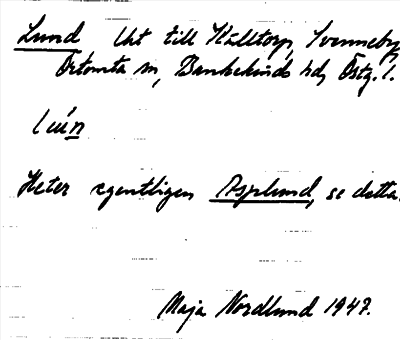 Lund, lht till Källtorp, Svenneby,
Örtomta sn, Bankekinds hd, Östg. l.
lu̇́n
Heter egentligen Asplund, se detta.
Maja Nordlund 1947.